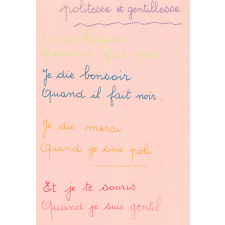 politesse et gentillesse
Je dis bonjour
Quand il fait jour
Je dis bonsoir
Quand il fait noir.
Je dis merci
Quand je suis poli
Et je te souris
Quand je suis gentil.